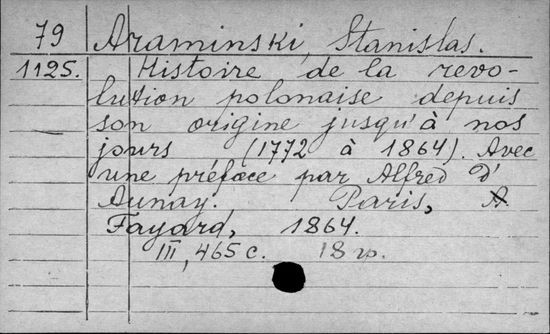 79 Araminski, Stanislas.
1125. Histoire de la revo-
lution polonaise depuis
son origine jusqu'à nos
jours (1772 à 1864). Avec
une préface par Alfred D'
Aunay. Paris, A
Fayard, 1864.
III, 465 c. 18 гр.